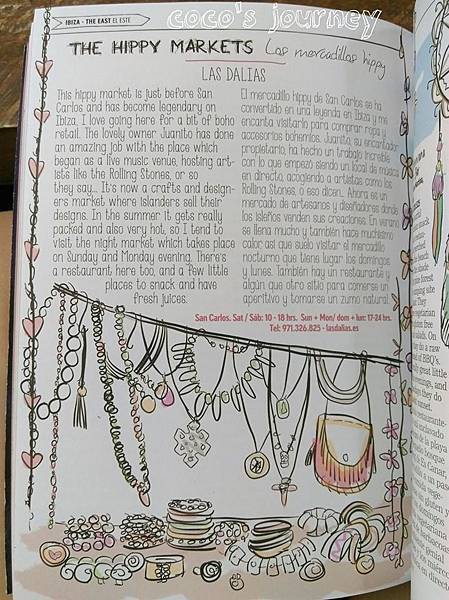 IBIZA - THE EAST EL ESTE
coco's journey
THE HIPPY MARKETS Los mercadillos hippy
LAS DALIAS
This hippy market is just before San
Carlos and has become legendary on
Ibiza, I love going here for a bit of boho
retail. The lovely owner Juanito has done
an amazing job with the place which
began as a live music venue, hosting art-
ists like the Rolling Stones, or so
they say... It's now a crafts and design-
ers market where islanders sell their
designs. In the summer it gets really
packed and also very hot, so I tend to
visit the night market which takes place
on Sunday and Monday evening. There's
a restaurant here too, and a few little
places to snack and have
fresh juices.
El mercadillo hippy de San Carlos se ha
convertido en una leyenda en Ibiza y me
encanta visitarlo para comprar ropa y
accesorios bohemios. Juanito, su encantador
propietario, ha hecho un trabajo increíble
con lo que empezó siendo un local de música
en directo, acogiendo a artistas como los
Rolling Stones, o eso dicen. Ahora es un
mercado de artesanos y diseñadores donde
los isleños venden sus creaciones. En verano
se llena mucho y también hace muchísimo
calor así que suelo visitar el mercadillo
nocturno que tiene lugar los domingos
y lunes. También hay un restaurante y
algún que otro sitio para comerse un
aperitivo y tomarse un zumo natural.
San Carlos. Sat / Sáb: 10 - 18 hrs. Sun + Mon/ dom + lun: 17-24 hrs.
Tel: 971.326.825 - lasdalias.es